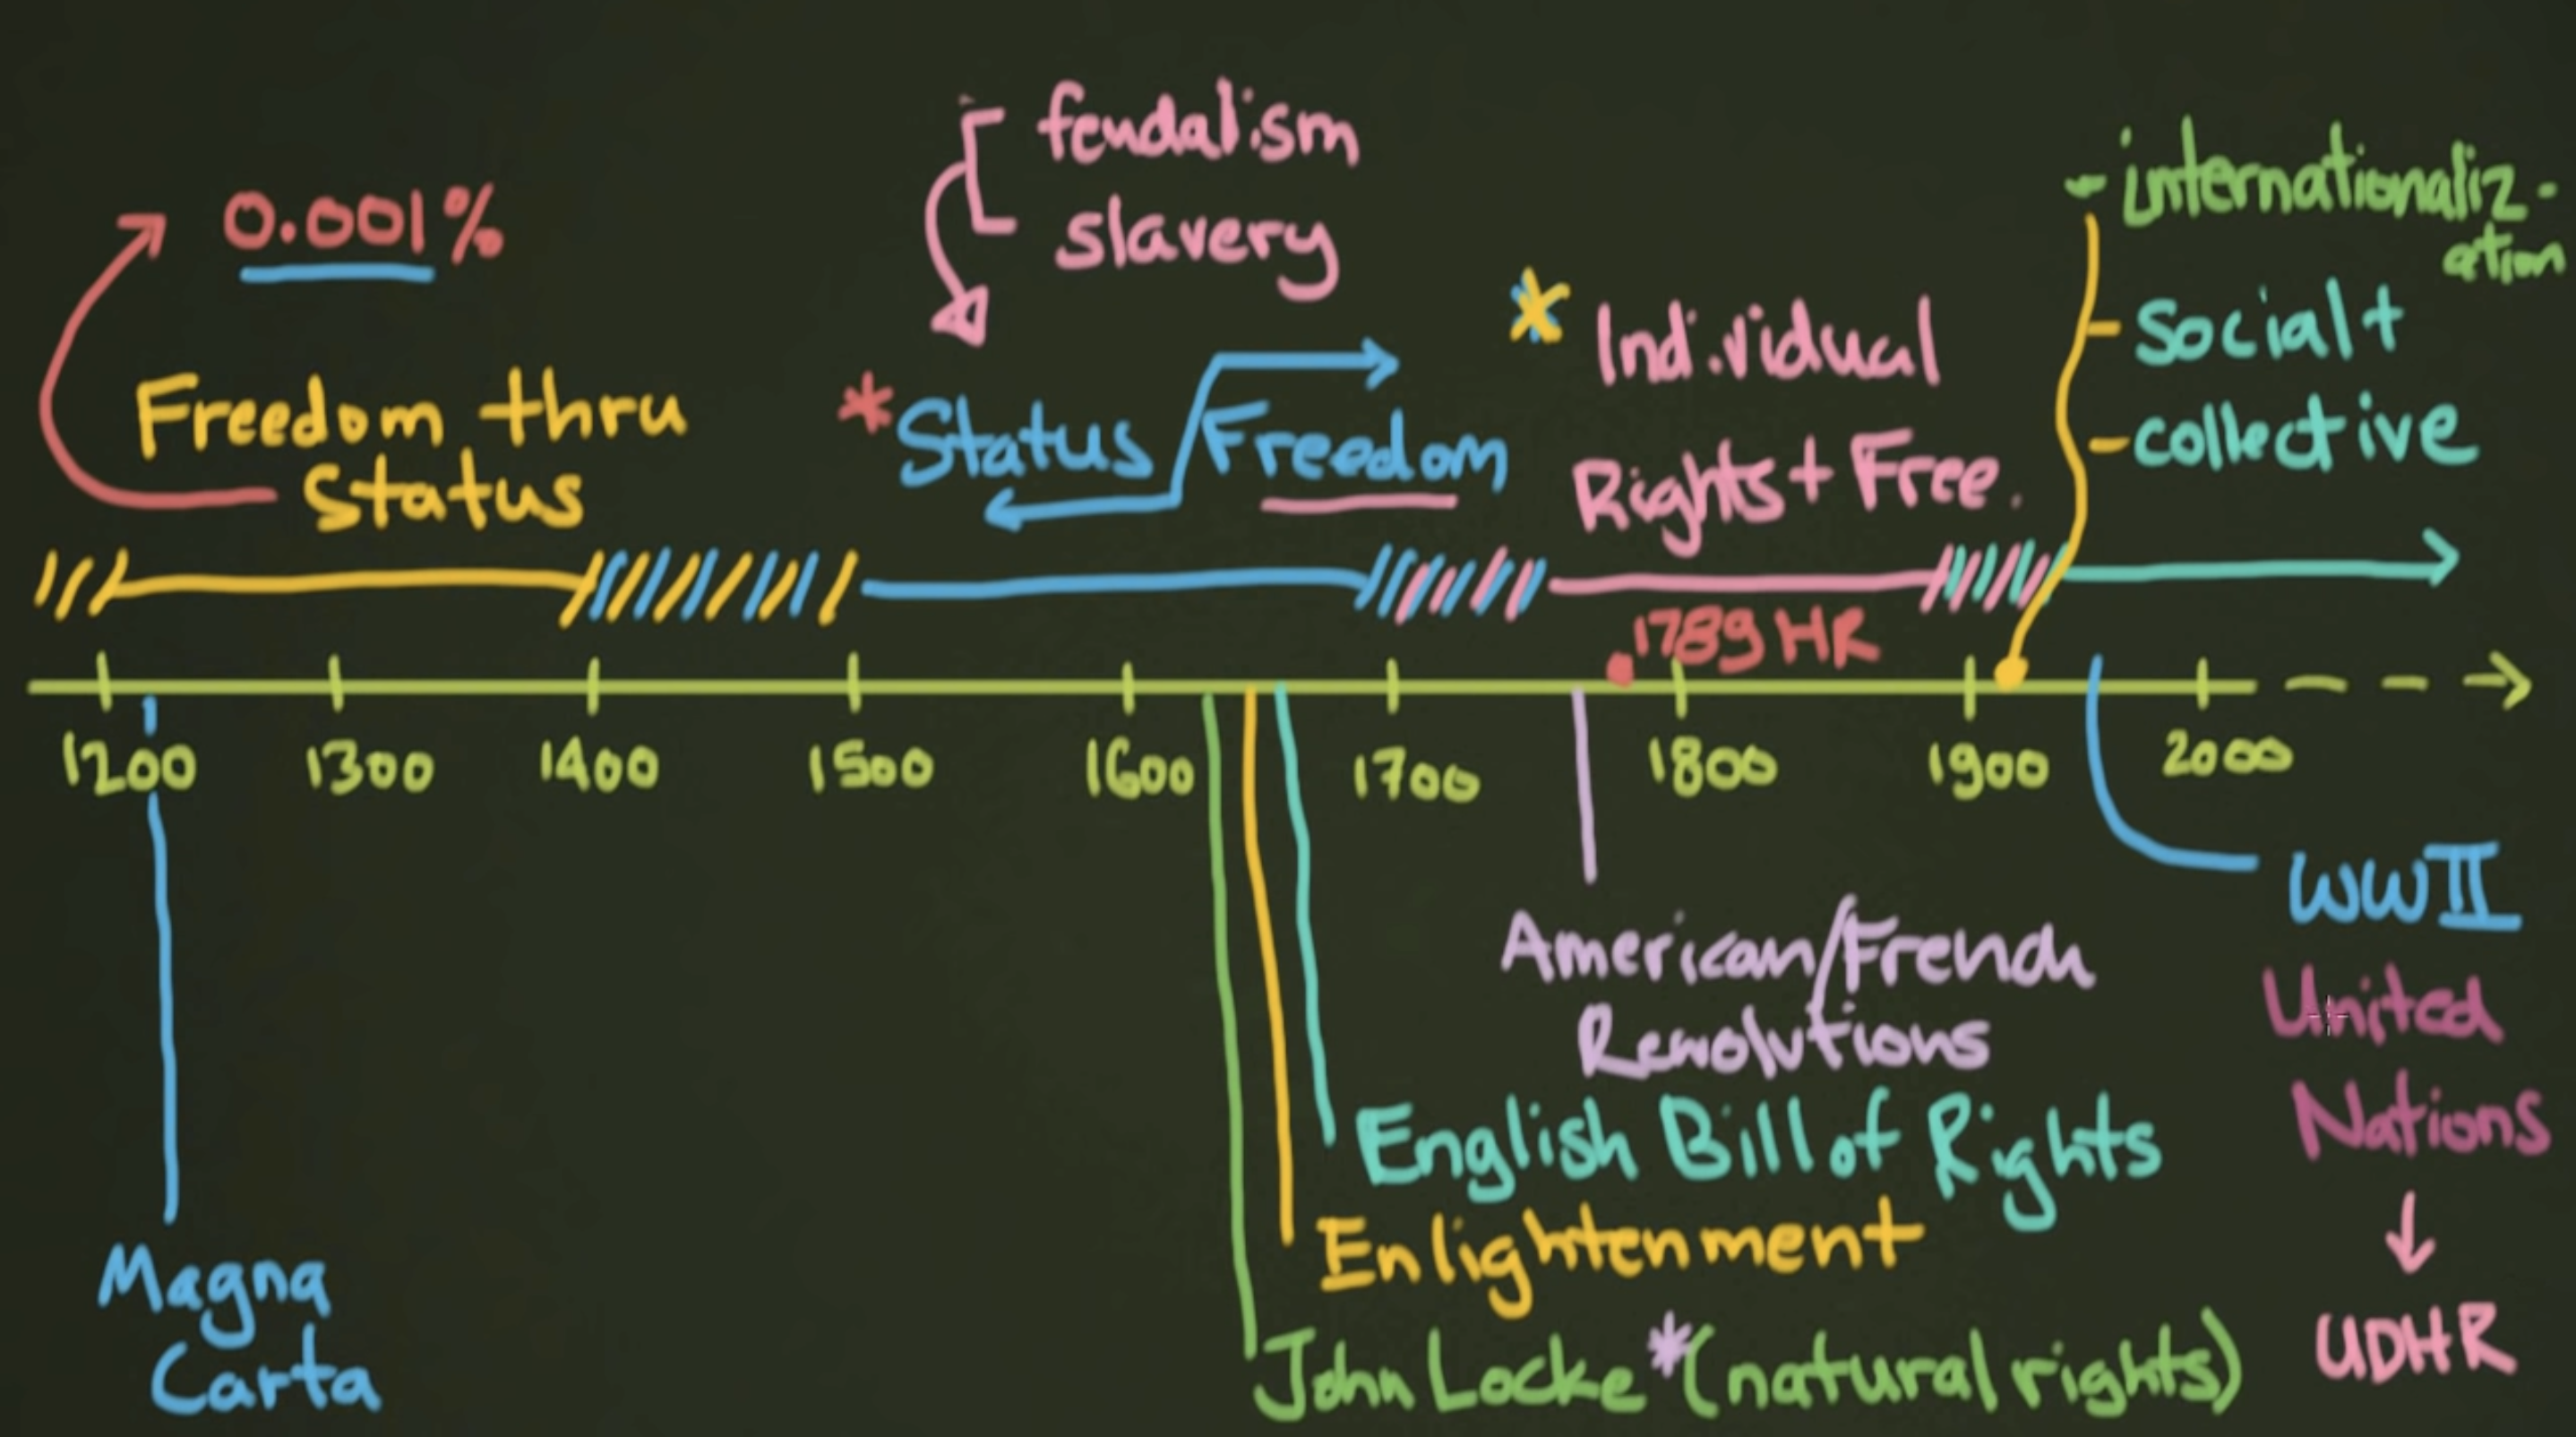 0.001%
Freedom thru
Status
feudalism
slavery
*Status/Freedom
* Individual
Rights + Free.
- internationaliz-
ation
- Social +
- collective
1789 HR
1200 1300 1400 1500 1600 1700 1800 1900 2000
Magna
Carta
American/French
Revolutions
English Bill of Rights
Enlightenment
John Locke *(natural rights)
WWII
United
Nations
↓
UDHR